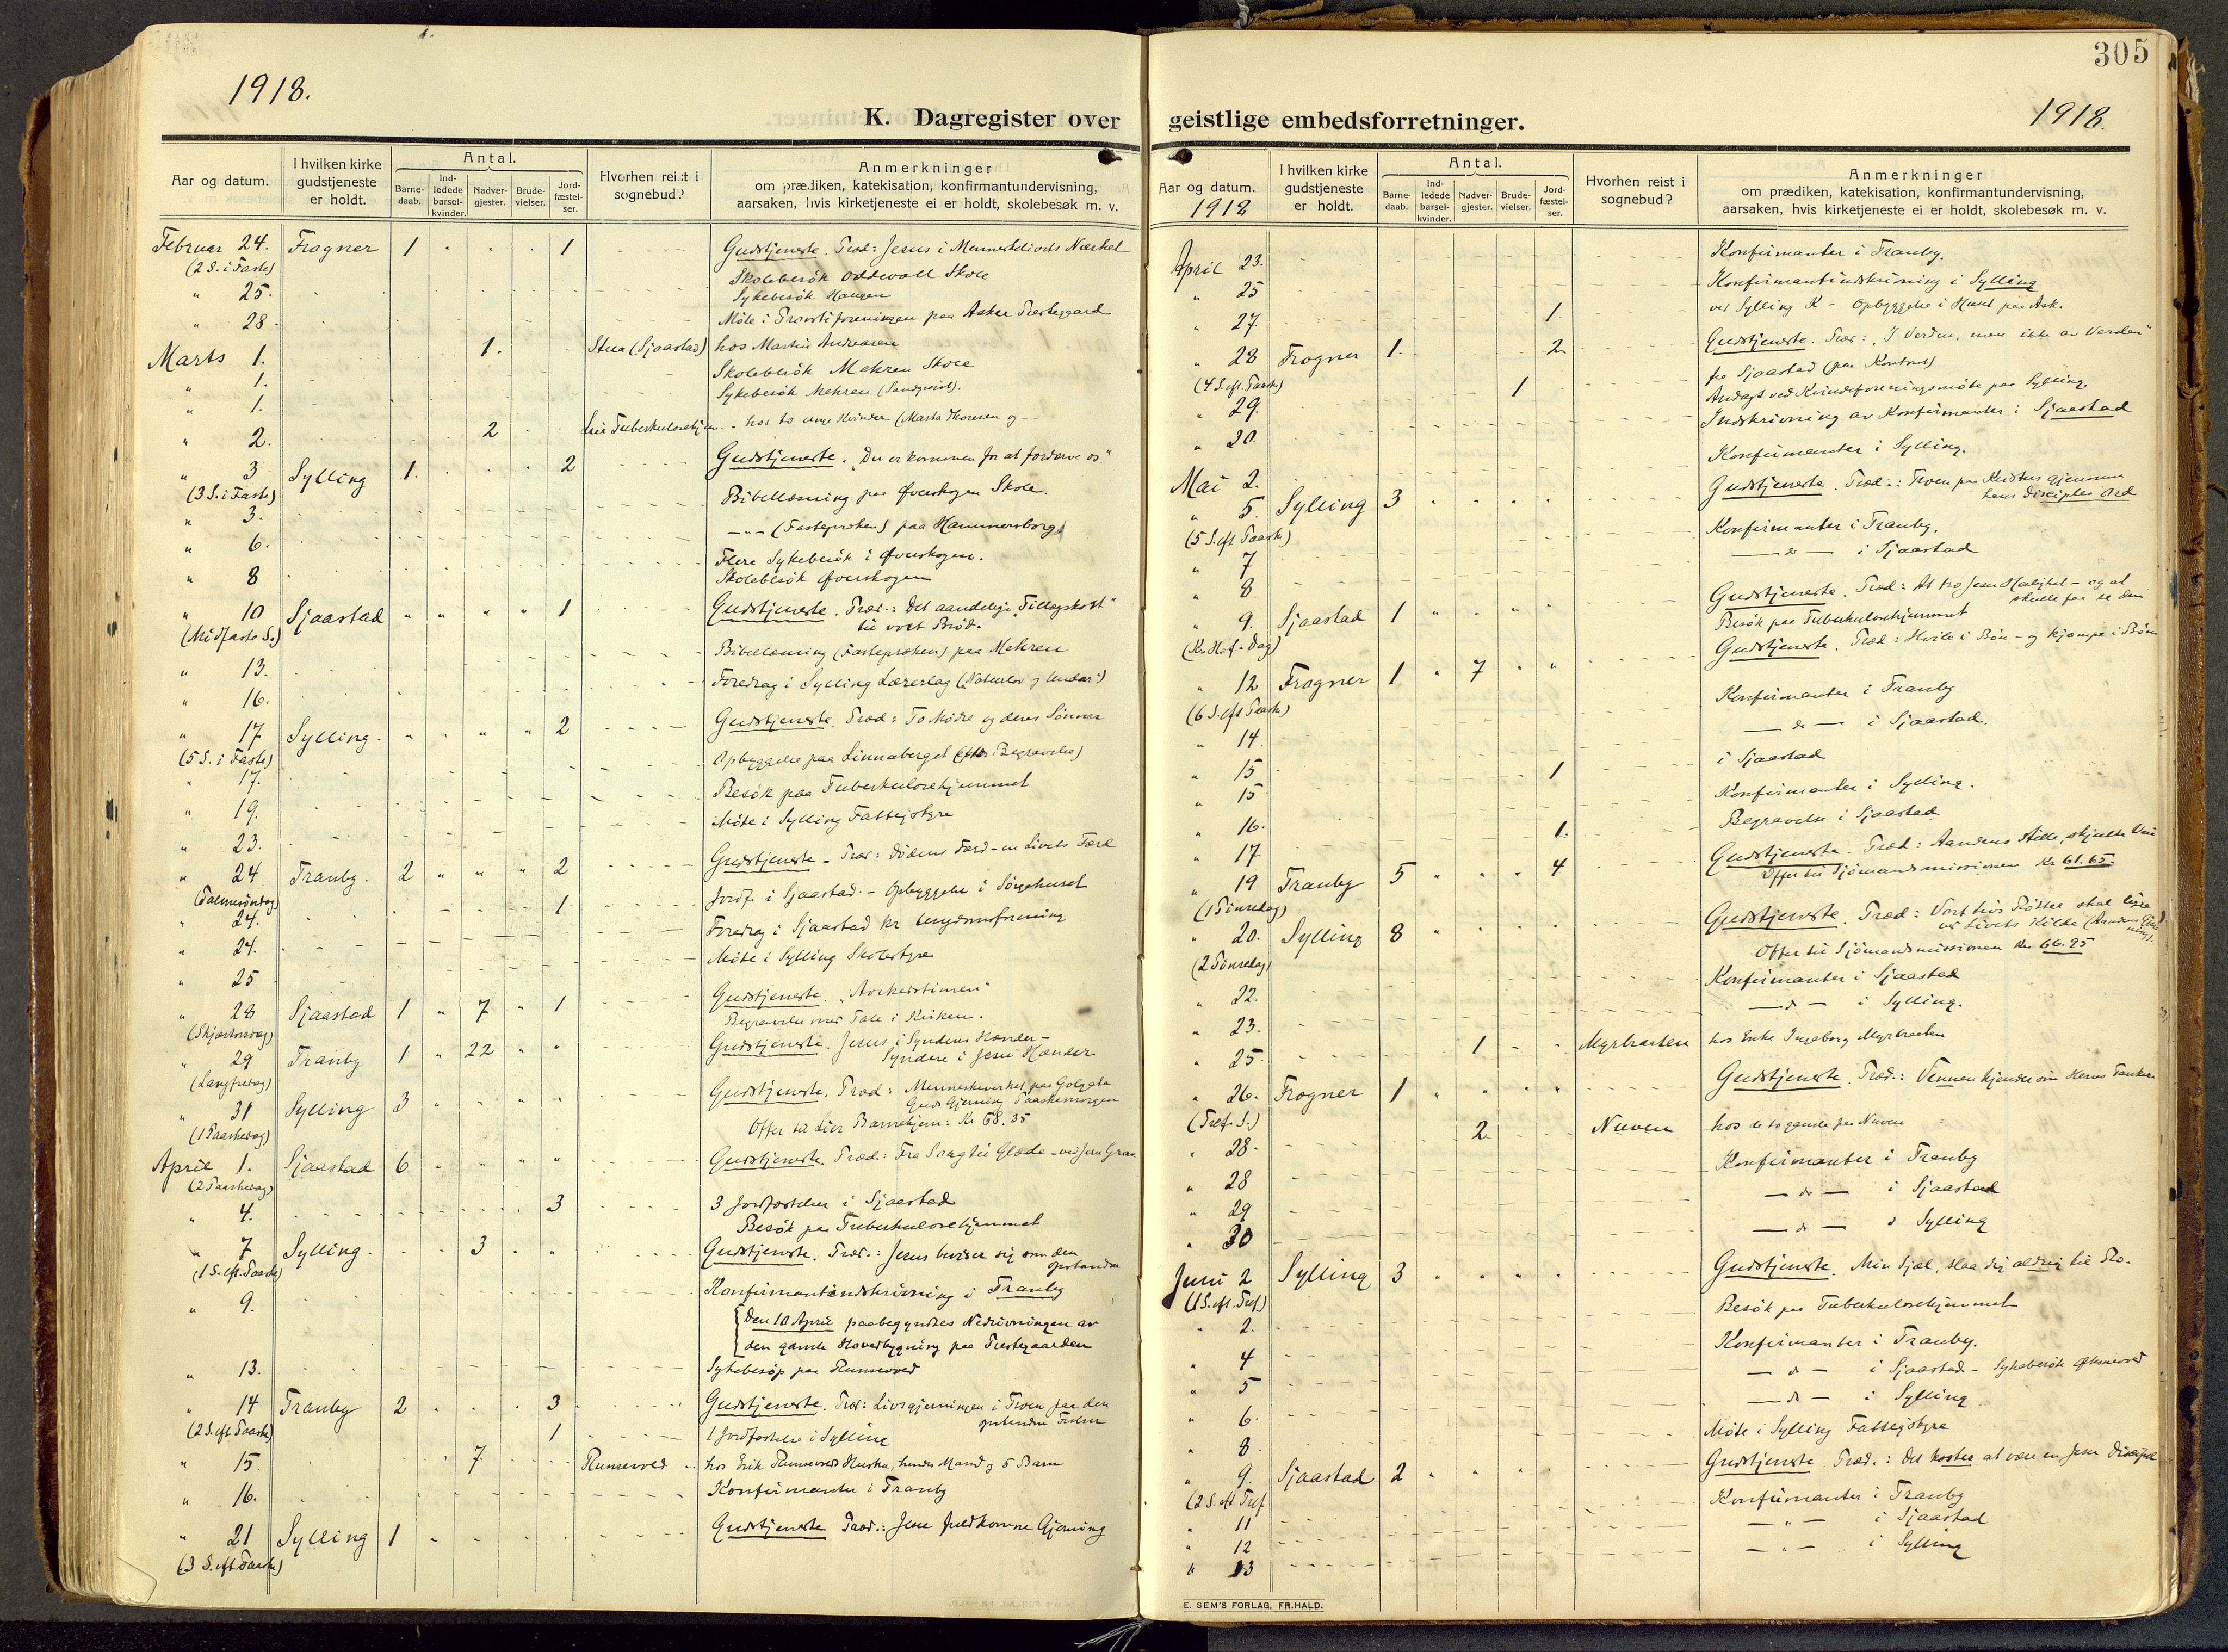 1918.
K. Dagregister over
Aar og datum.
I hvilken kirke gudstjeneste er holdt.
Antal.
Barne-daab.
Ind-ledede barsel-kvinder.
Nadver-gjester.
Brude-vielser.
Jord-fæstel-ser.
Hvorhen reist i sognebud?
Anmerkninger
om prædiken, katekisation, konfirmantundervisning,
aarsaken, hvis kirketjeneste ei er holdt, skolebesøk m. v.
Februar 24. Frogner 1 1 Gudstjeneste. Præd: Jesus i Menneskelivets
(2 S. i Faste) Skolebesök Oddevall Skole
" 25. Sykebesök Haugen
" 28 Möte i foreningen paa Asker Prestegaard
Marts 1. 1. (Sjaastad) hos Martin Andreasen
" 1. Skolebesök Mehren Skole
" 1. Sykebesök Mehren
" 2. 2 Lier Tuberkulosehjem - hos to unge Kvinder (Marta og
" 3 Sylling 1. 2 Gudstjeneste. "Du er kommen for at fordærve os"
(3 S. i Faste)
" 3. Bibellæsning paa Överskogen Skole.
" 6. (Fastepræken) paa Hammersborg
" 8 Flere Sykebesök i Överskogen.
Skolebesök Överskogen
" 10 Sjaastad " " " " 1 Gudstjeneste. Præd.: Det aandelige "Tillægskost"
(Midfaste S.) til vort Bröd.
" 13. Bibellæsning (Fastepræken) paa Mehren
" 16. Foredrag i Sylling Lærerlag (Naturlov og Under)
" 17 Sylling. " " " " 2 Gudstjeneste. Præd: To Mödre og deres Sönner
(5 S. i Faste)
" 17. Opbyggelse paa Linnaberget (efter Begravelse)
" 19. Besök paa Tuberkulosehjemmet
" 23. Möte i Sylling Fattigstyre
" 24 Tranby. 2 " " " 2 Gudstjeneste - Præd: Dödens Færd - en Livets Færd
(Palmesöndag)
" 24. 1 Jordf. i Sjaastad. - Opbyggelse i Sörgehuset
" 24. Foredrag i Sjaastad kr Ungdomsforening
" 25 Möte i Sylling Skolestyre
" 28 Sjaastad 1 " 7 " 1 Gudstjeneste. "Avskedstimen"
(Skjærtorsdag) Begravelse med Tale i Kirken.
" 29 Tranby 1 " 22 " " Gudstjeneste. Jesus i Synderes Hænder -
(Langfredag) Syndere i Jesu Hænder.
" 31 Sylling 3 " " " " Gudstjeneste. Præd: Menneskeverket paa Golgata
(1 Paaskedag) Guds Gjerning Paaskemorgen
Offer til Lier Barnehjem: Kr 68.35
April 1. Sjaastad 6 " " " " Gudstjeneste. Præd: Fra Sorg til Glæde - ved Jesu Grav
(2 Paaskedag)
" 4. 3 3 Jordfæstelser i Sjaastad
Besök paa Tuberkulosehjemmet
" 7 Sylling. 3 Gudstjeneste. Præd.: Jesus beviser sig som den
(1 S. eft. Paaske) opstandne
" 9. Konfirmantindskrivning i Tranby
Den 10 April paabegyndtes Nedrivningen av
den gamle Hovedbygning paa Prestegaarden
" 13. Sykebesøg paa
" 14 Tranby 2 3 Gudstjeneste. Præd: Livsgjerningen i Troen paa den
(2 S. eft Paaske) opstandne Frelser
1 1 Jordfæstelse i Sylling
" 15 7. hos Erik Hustru, hendes Mand og 5 Barn
" 16. Konfirmanter i Tranby
" 21 Sylling 1 Gudstjeneste Præd.: Jesu fuldkomne Gjerning
(3 S. eft Paaske)
305
1918.
geistlige embedsforretninger.
Aar og datum.
1918
I hvilken kirke gudstjeneste er holdt.
Antal.
Barne-daab.
Ind-ledede barsel-kvinder.
Nadver-gjester.
Brude-vielser.
Jord-fæstel-ser.
Hvorhen reist i sognebud?
Anmerkninger
om prædiken, katekisation, konfirmantundervisning,
aarsaken, hvis kirketjeneste ei er holdt, skolebesøk m. v.
April 23. Konfirmanter i Tranby.
" 25 Konfirmantindskrivning i Sylling
" 27. 1 ved Sylling K - Opbyggelse i paa Ask.
" 28 Frogner 1. 2. Gudstjeneste. Præd: "I Verden, men ikke av Verden"
(4 S. eft. Paaske) 1 fra Sjaastad (paa Kontoret)
" 29. Andagt ved Kvindeforeningsmöte paa Sylling.
" 30. Indskrivning av Konfirmanter i Sjaastad
Mai 2. Konfirmanter i Sylling.
" 5. Sylling 3 Gudstjeneste. Præd.: Troen paa Kristus gjennem
(5 S. eft Paaske) hans Disciples Ord
" 7 Konfirmanter i Tranby.
" 8 — do — i Sjaastad
" 9. Sjaastad 1 Gudstjeneste. Præd: At tro Jesu Herlighet - og at
(Kr. H.f. Dag) skulle faa se den
Besök paa Tuberkulosehjemmet
" 12 Frogner 1 " 7 " " Gudstjeneste. Præd: Hvile i Bön - og kjæmpe i Bön
(6 S. eft Paaske)
" 14. Konfirmanter i Tranby
" 15 — do — i Sjaastad.
" 15 1 i Sjaastad
" 16. Konfirmanter i Sylling.
" 17 1. Begravelse i Sjaastad
" 19 Tranby 5 4 Gudstjeneste. Præd: Aandens stille, skjulte
(1 Pinsedag) Offer til Sjömandsmissionen Kr 61.65.
" 20. Sylling 8 Gudstjeneste. Præd:
(2 Pinsedag) ved Livets Kilde
Offer til Sjömandsmissionen Kr 66.95
" 22. Konfirmanter i Sjaastad
" 23. — do — i Sylling.
" 25. 1 Myrbraaten hos Enke Ingeborg Myrbraaten
" 26. Frogner 1 Gudstjeneste. Præd.: Vennen kjender sin Herres Tanker
(Tref. S.)
" 28. 2 hos de to gamle paa
" 28 Konfirmanter i Tranby
" 29 — do — i Sjaastad
" 30 — do — i Sylling
Juni 2 Sylling 3 Gudstjeneste. Min Sjæl, slaa dig aldrig til Ro.
(1 S. eft. Tref.)
" 2. Besök paa Tuberkulosehjemmet
" 4 Konfirmanter i Tranby.
" 5 — do — i Sjaastad - Sykebesök
" 6. — do — i Sylling.
" 8. Möte i Sylling Fattigstyre
" 9. Sjaastad 2 Gudstjeneste. Præd.: Det koster at være en Jesu Discipel
(2 S. eft Tref
" 11 Konfirmanter i Tranby
" 12 — " — i Sjaastad
" 13 — " — i Sylling
E. SEM'S FORLAG, FR.HALD.